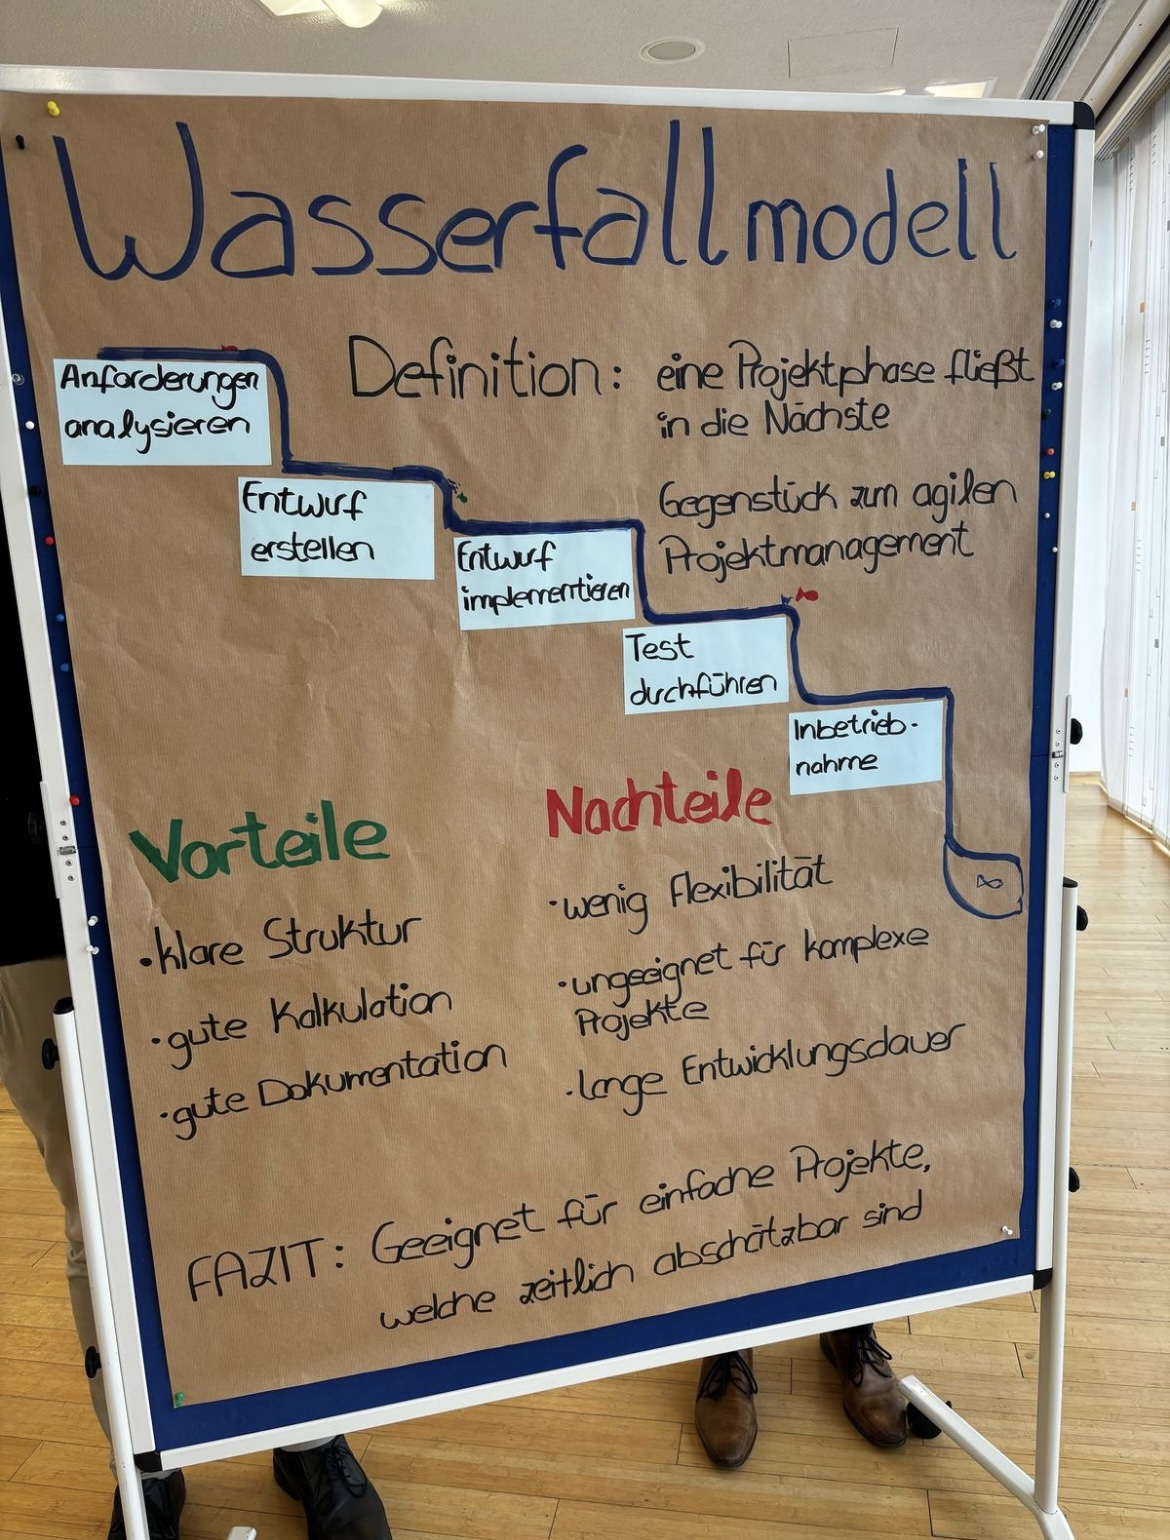 Wasserfallmodell
Definition: eine Projektphase fließt
in die Nächste
Gegenstück zum agilen
Projektmanagement
Anforderungen
analysieren
Entwurf
erstellen
Entwurf
implementieren
Test
durchführen
Inbetrieb-
nahme
Vorteile
·klare Struktur
·gute Kalkulation
·gute Dokumentation
Nachteile
·wenig Flexibilität
·ungeeignet für komplexe
Projekte
·lange Entwicklungsdauer
FAZIT: Geeignet für einfache Projekte,
welche zeitlich abschätzbar sind